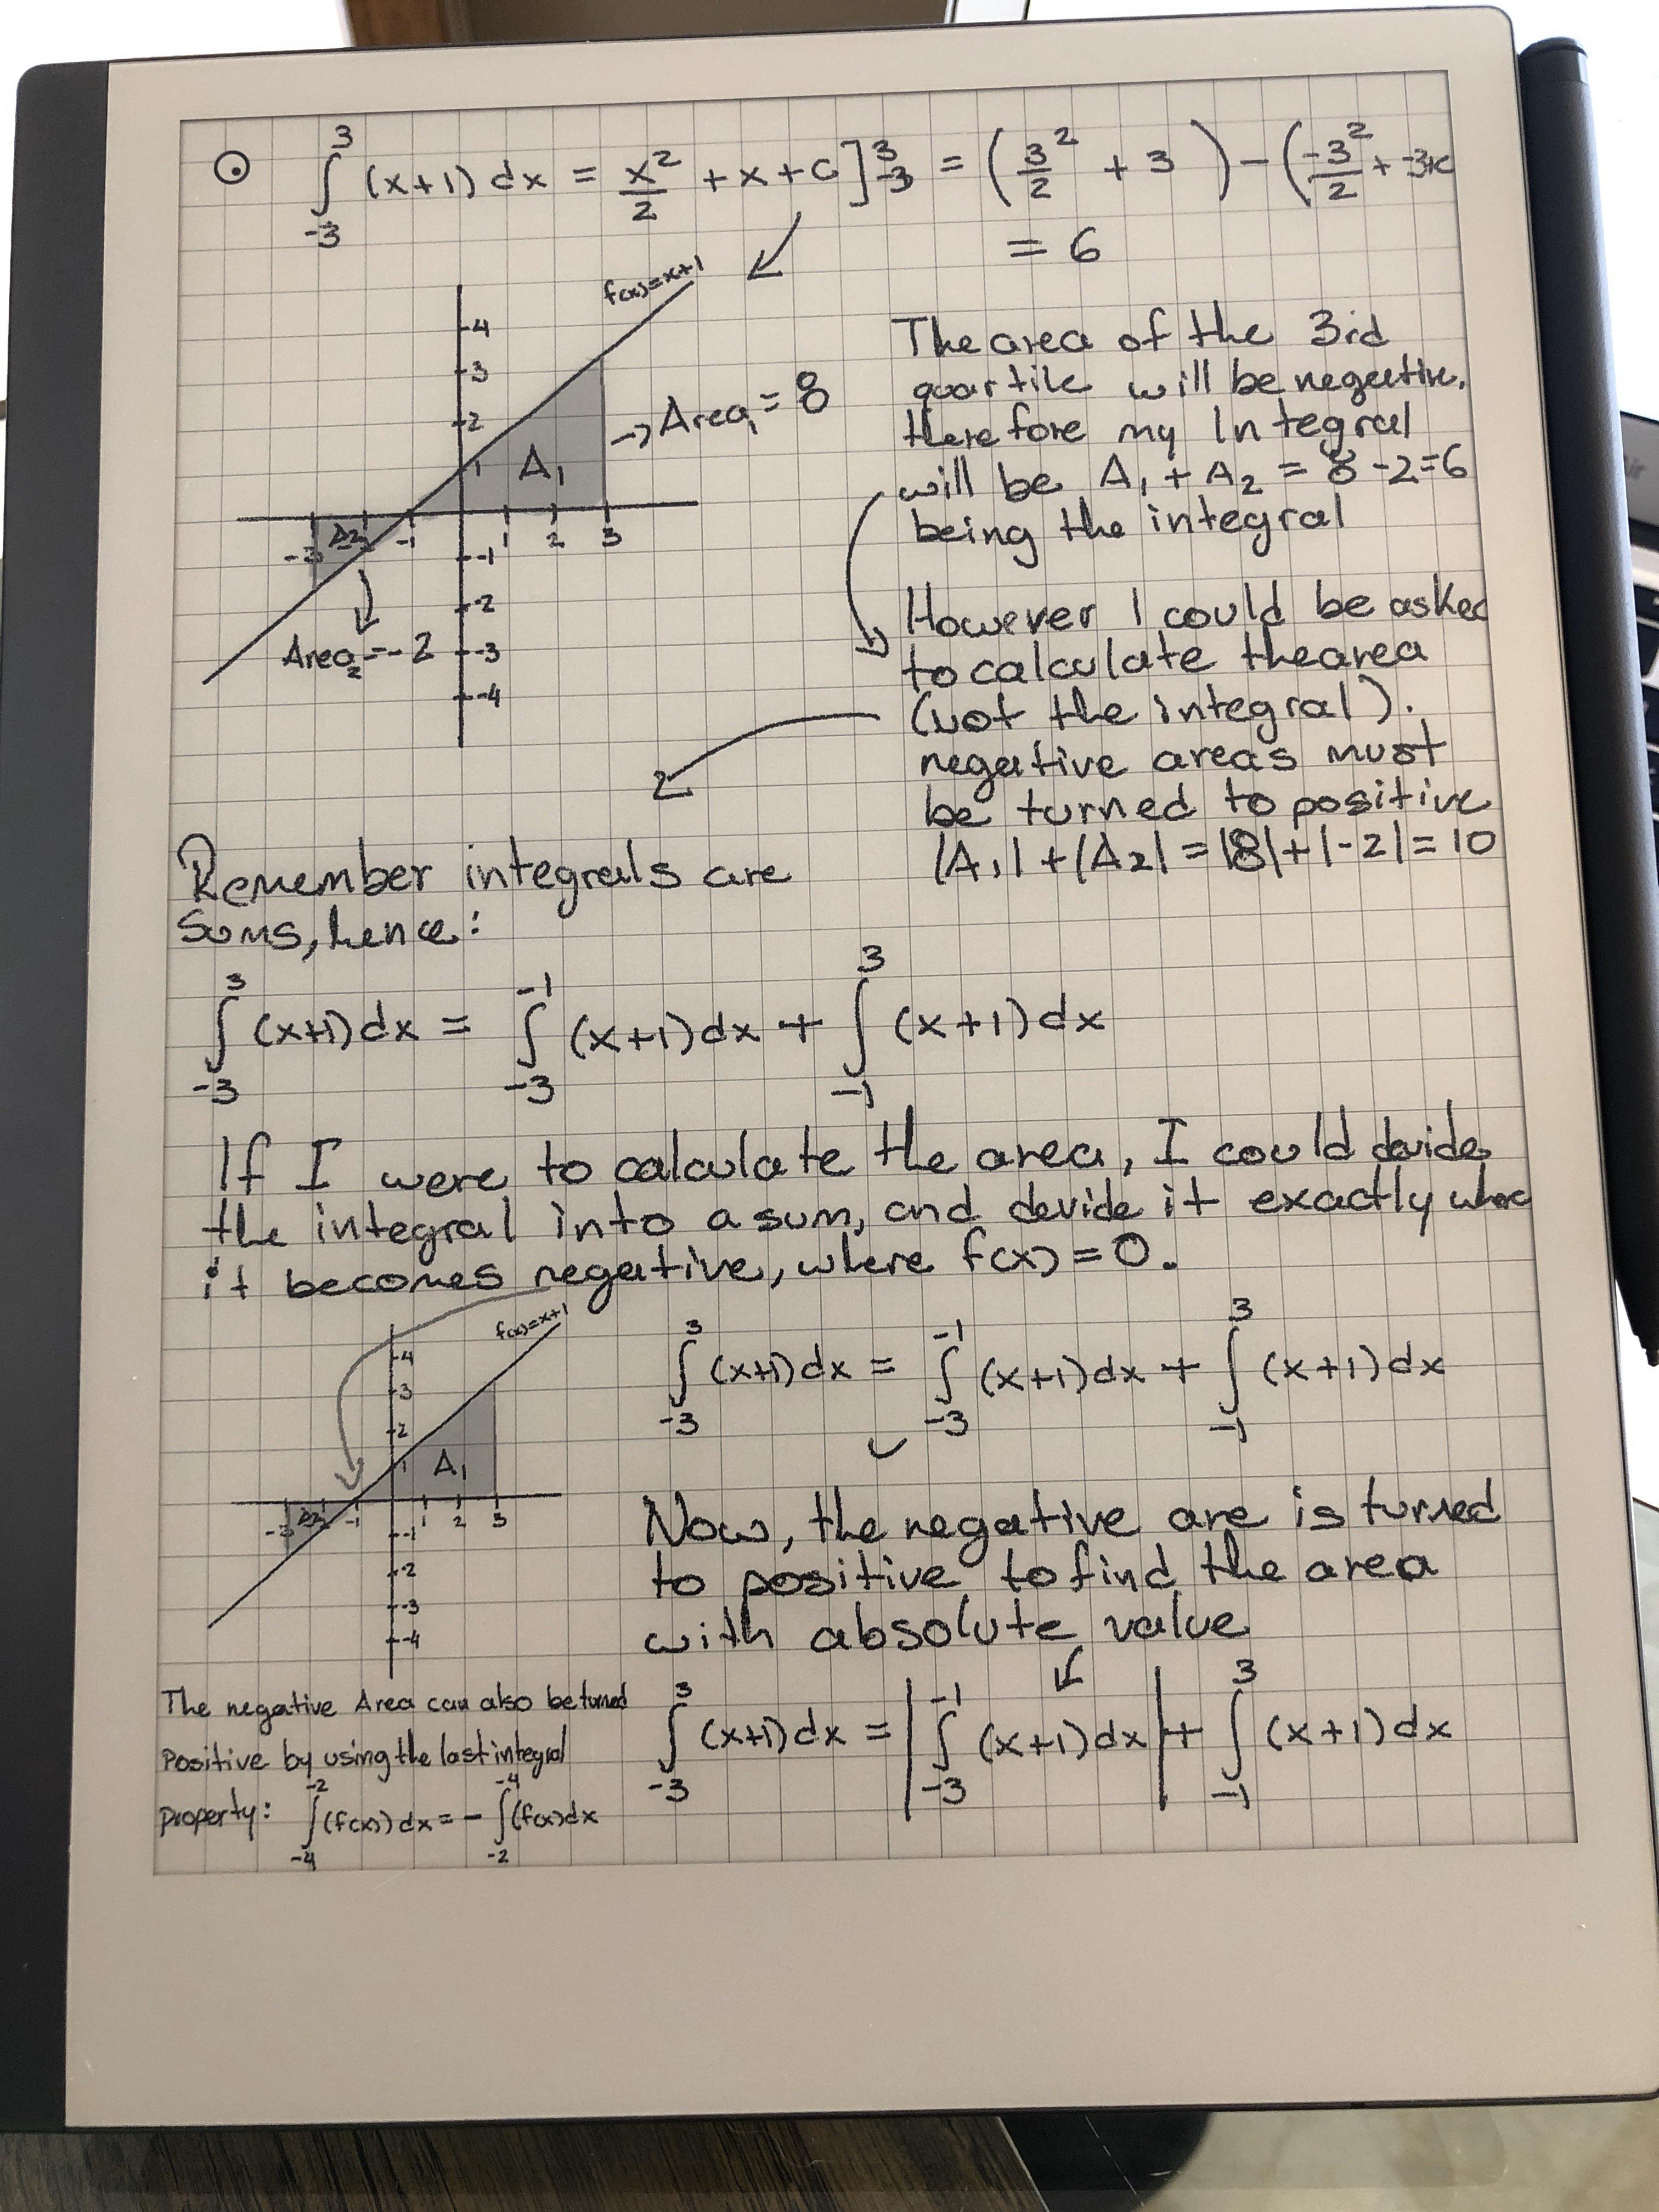 ∫₋₃³ (x+1) dx = x²/2 + x + C ]₋₃³ = (3²/2 + 3 ) - (-3²/2 + -3+c
= 6
f(x)=x+1
The area of the 3rd
quartile will be negative,
therefore my Integral
will be A₁ + A₂ = 8 -2=6
being the integral
4
3
2
1
-> Area₁ = 8
A₁
A2
-3 -2 -1 1 2 3
-1
-2
-3
-4
Area₂ = -2
However I could be asked
to calculate the area
(not the integral).
negative areas must
be turned to positive
|A₁| + |A₂| = |8|+|-2| = 10
Remember integrals are
Sums, hence:
∫₋₃³ (x+1) dx = ∫₋₃⁻¹ (x+1) dx + ∫₋₁³ (x+1) dx
If I were to calculate the area, I could devide
the integral into a sum, and devide it exactly where
it becomes negative, where f(x) = 0.
f(x)=x+1
4
3
2
1
A₁
A2
-3 -2 -1 1 2 3
-1
-2
-3
-4
∫₋₃³ (x+1) dx = ∫₋₃⁻¹ (x+1) dx + ∫₋₁³ (x+1) dx
Now, the negative are is turned
to positive to find the area
with absolute value
∫₋₃³ (x+1) dx = |∫₋₃⁻¹ (x+1) dx| + ∫₋₁³ (x+1) dx
The negative Area can also be turned
Positive by using the last integral
Property: ∫₋₄⁻² (f(x)) dx = - ∫₋₂⁻⁴ (f(x) dx